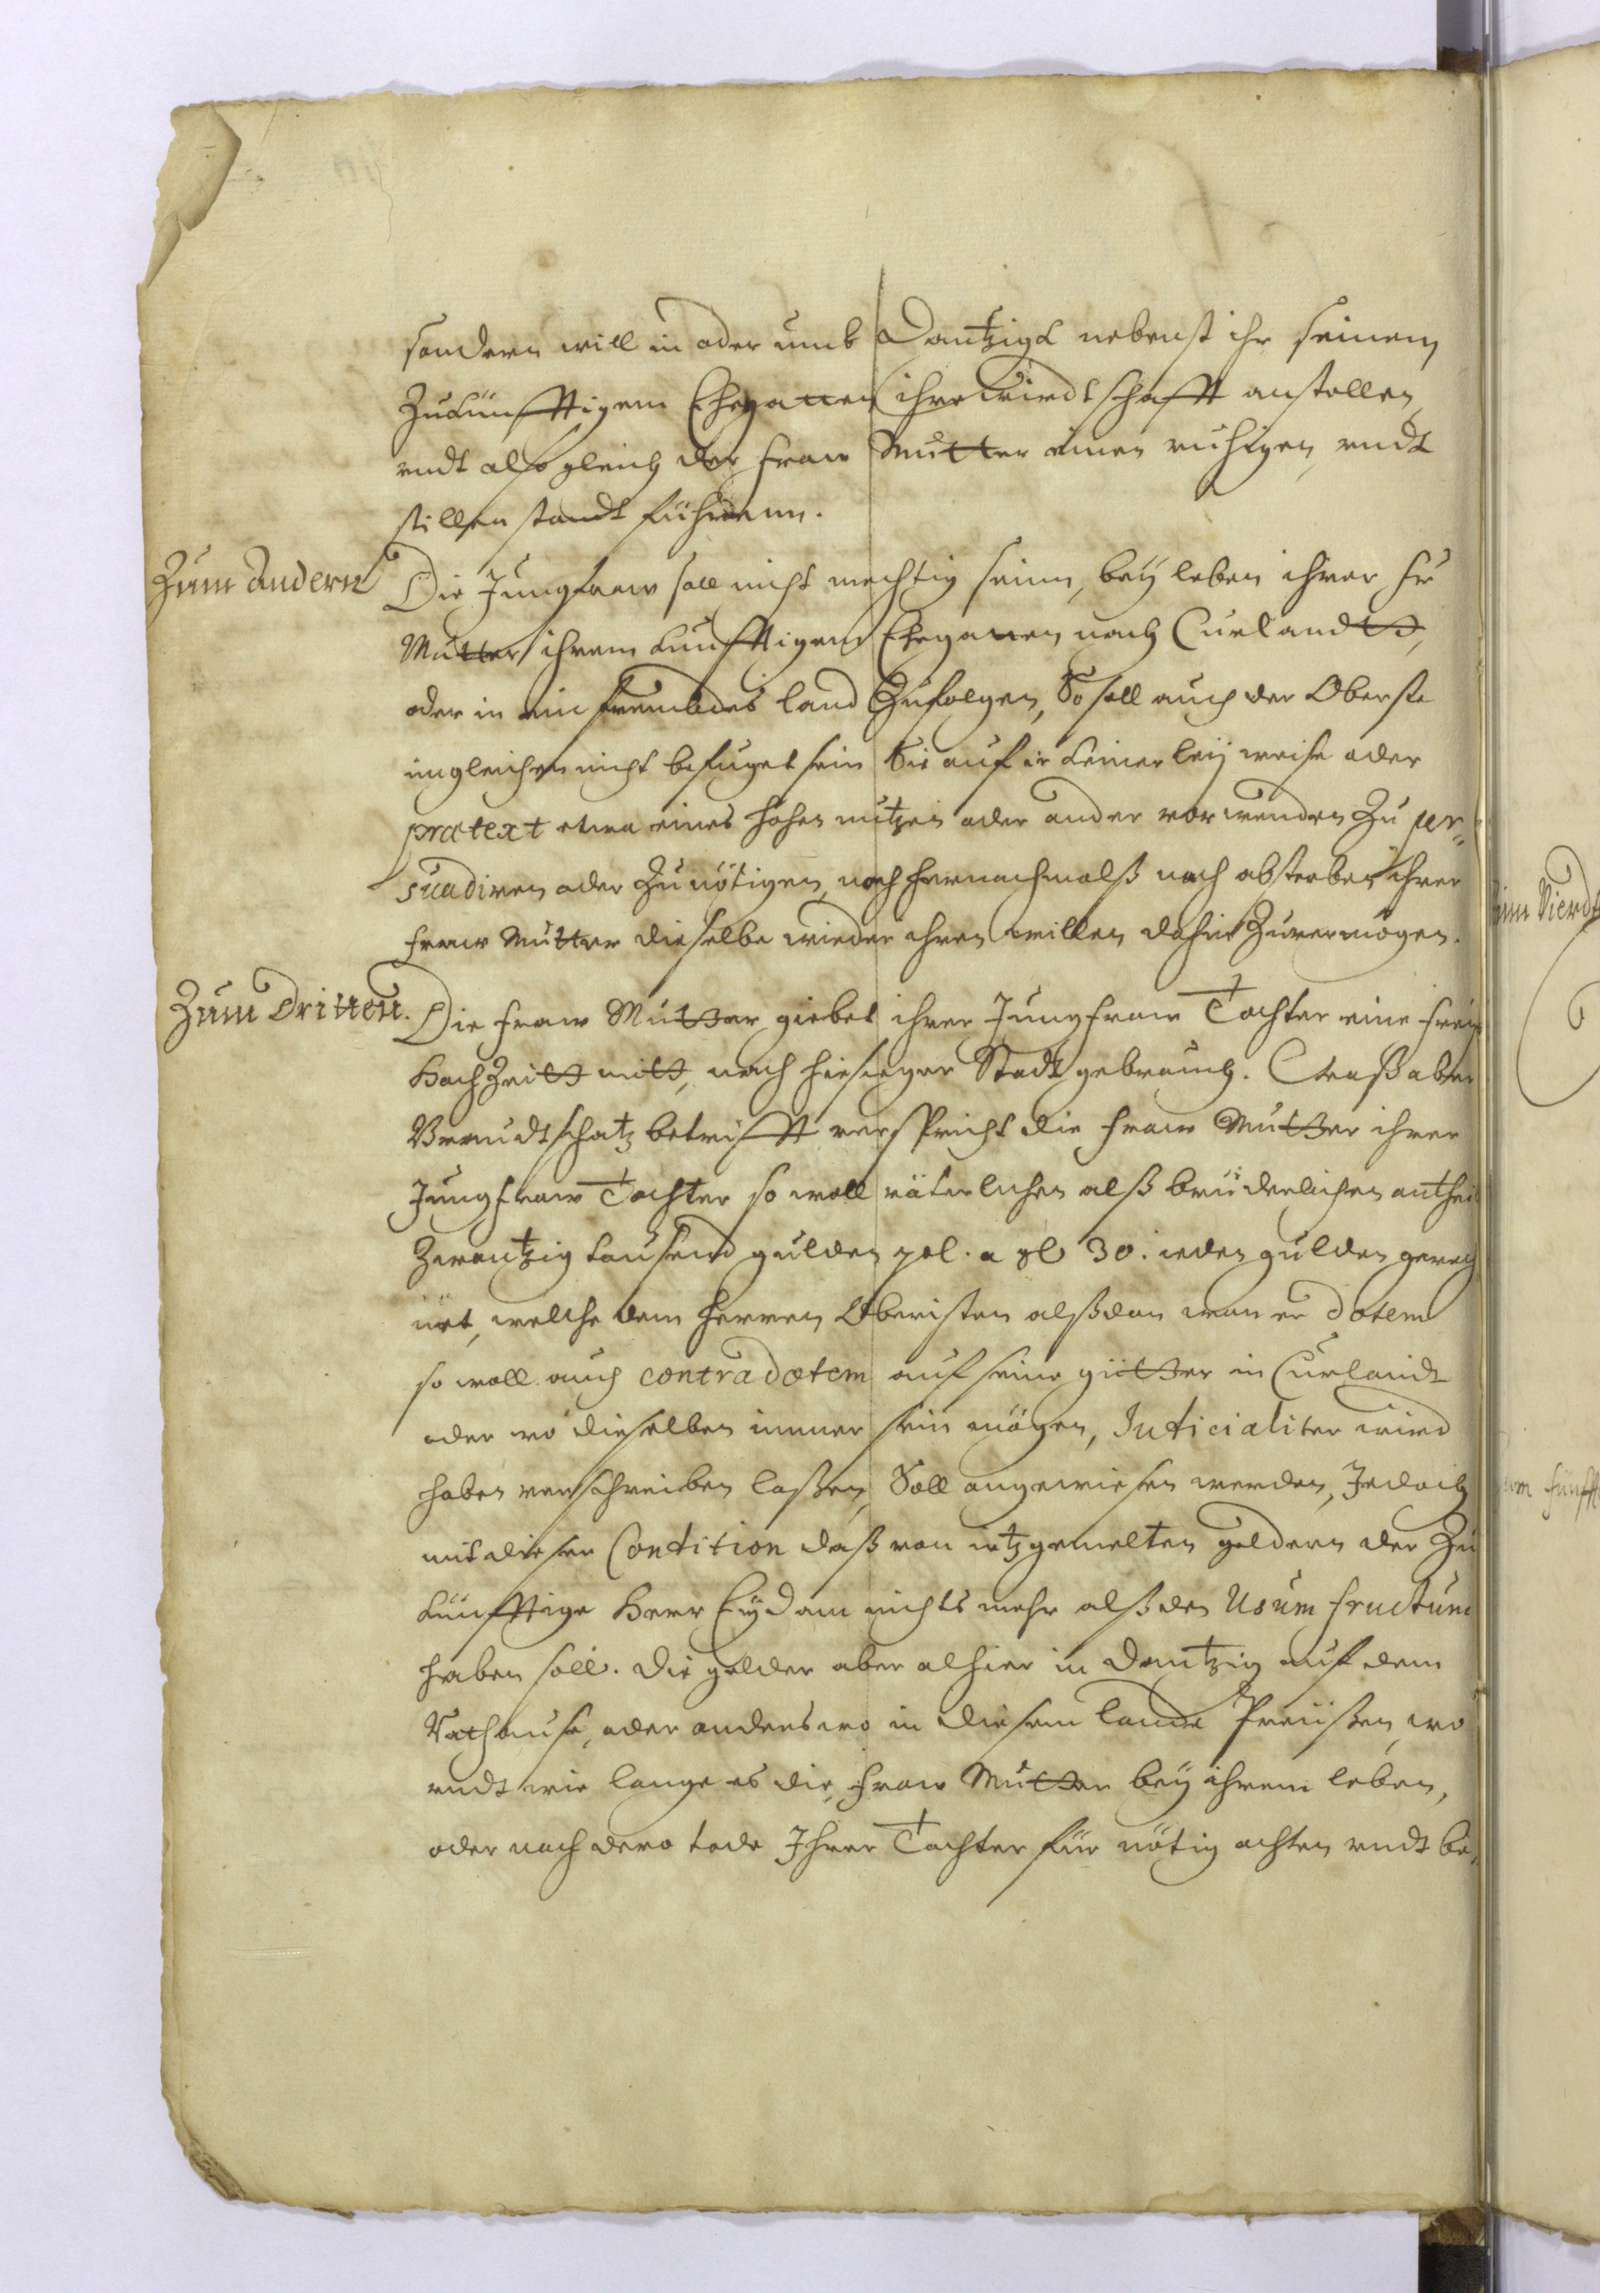 sondern will in oder umb Dantzigk nebenst ihr seinem
Zukünfftigem Ehegatten ihre wirdtschafft anstellen
undt also gleich der Fraw Mutter einen ruhigen undt
stillen standt führenn.
Zum Andern Die Jungfraw soll nicht mechtig seinn, bey leben ihrer Fr
Mutter ihrem künfftigem Ehegatten nach Curlandtt,
oder in ein frembdes land Zufolgen, So soll auch der Oberste
imgleichen nicht befuget sein Sie auf keinerley weise oder
prætext etwa eines hohen nutzen oder ander vorwenden Zu per-
suadiren oder Zu nötigen, noch hernachmalß nach absterben ihrer
Fraw Mutter dieselbe wieder ihren willen dahin Zuvermögen.
Zum Dritten. Die Fraw Mutter giebet ihrer Jungfraw Tochter eine frey
HochZeitt mitt, nach hiesieger Stadt gebrauch. Waß aber
Braudtschatz betrifft verspricht die Fraw Mutter ihrer
Jungfraw Tochter so woll väterlichen alß brüderlichen antheil
Zwantzig tausend gulden pol. a gl 30. ieden gulden gerech
net, welche dem Herren Obristen alßdan wan er dotem
so woll auch contradotem auf seine gütter in Curlandt
oder wo dieselben immer sein mögen, Juditialiter wird
haben verschreiben laßen, Soll angewiesen werden, Jedoch
mit dieser Condition daß von itzgemelten geldern der Zu
künfftige Herr Eydam nichts mehr alß den Usum fructum
haben soll. Die gelder aber alhier in Dantzig auf dem
Rathause, oder anderswo in diesem lande Preüßen, wo
undt wie lange es die Fraw Mutter bey ihrem leben,
oder nach dero tode Ihrer Tochter für nötig achten undt be-
Zum Vierdt
Zum fünfft